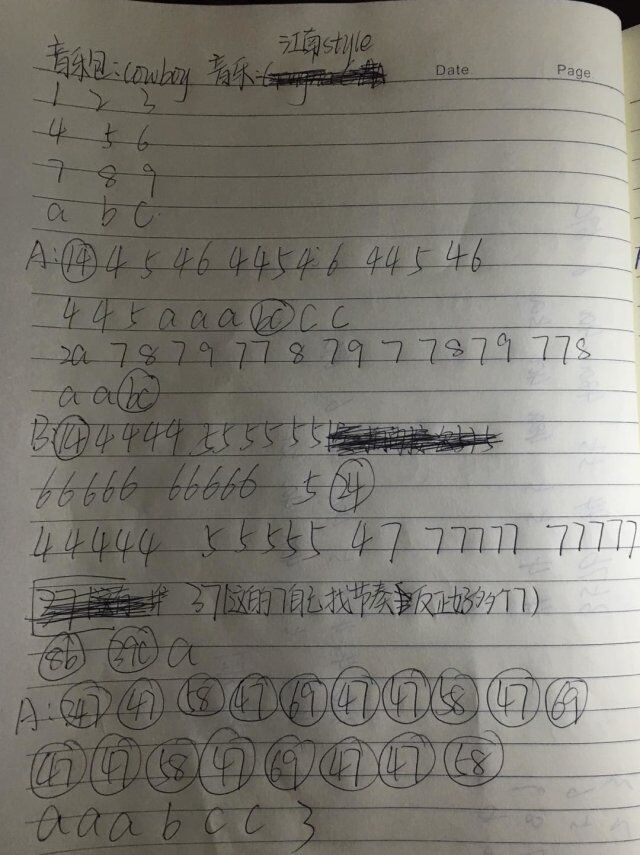 江南style
音乐包:cowboy 音乐: Date Page
1 2 3
4 5 6
7 8 9
a b c
A: 14 4 5 46 4454 6 44 5 46
4 4 5 a a a bc C C
2a 7 8 7 9 77 8 79 7 7 8 7 9 7 7 8
a a bc
B: 14 4 4 4 4 55 5 5 5
66666 66666 5 24
4 4 4 4 4 5 5 5 5 5 4 7 77777 77777
37(这的7自己找节奏 反正好多个7)
8b 39c a
A: 247 47 58 47 69 47 47 58 47 69
47 47 58 47 69 47 47 58
a a a b c c 3